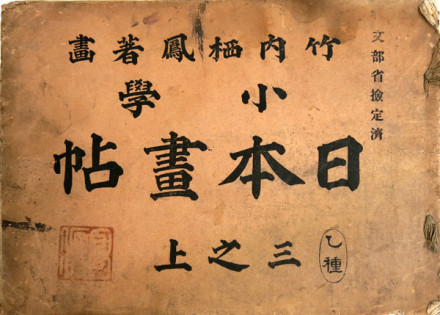 文部省檢定済
竹内栖鳳著畫
小學
日本畫帖
乙種
三之上